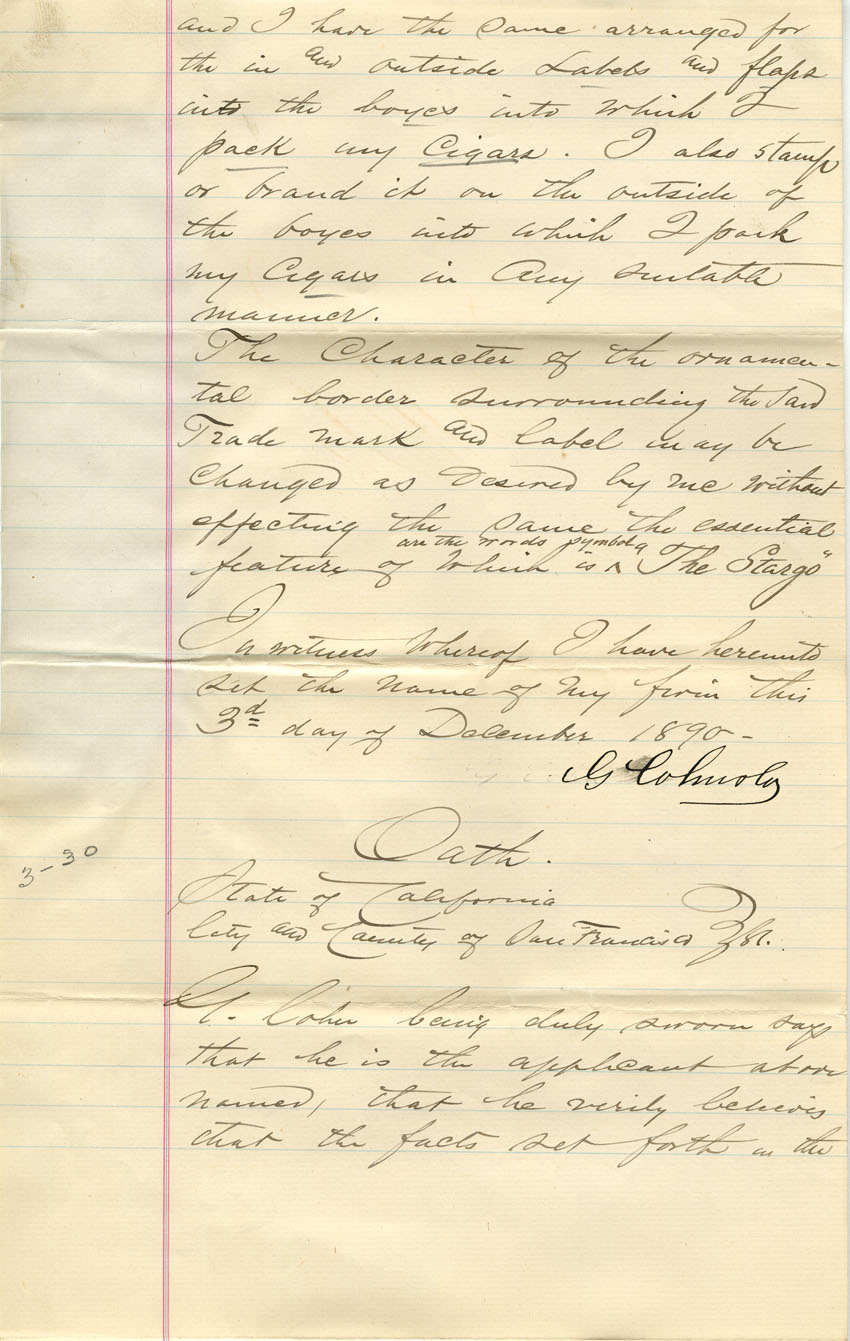 and I have the same arranged for
the in and outside Labels and flaps
into the boxes into which I
pack my Cigars. I also stamp
or brand it on the outside of
the boxes into which I pack
my Cigars in Any suitable
manner.
The Character of the ornamen-
tal border surrounding the Said
Trade mark and label may be
Changed as desired by me without
effecting the same the essential
are the words symbol
feature of Which is ^ "The Stargo"
In witness Whereof I have hereunto
set the name of my firm this
3d day of December 1890-
G Cohn & Co
Oath.
3-30
State of California
City and County of San Francisco } ss.
G. Cohn being duly sworn says
that he is the applicant above
named, that he verily believes
that the facts set forth in the